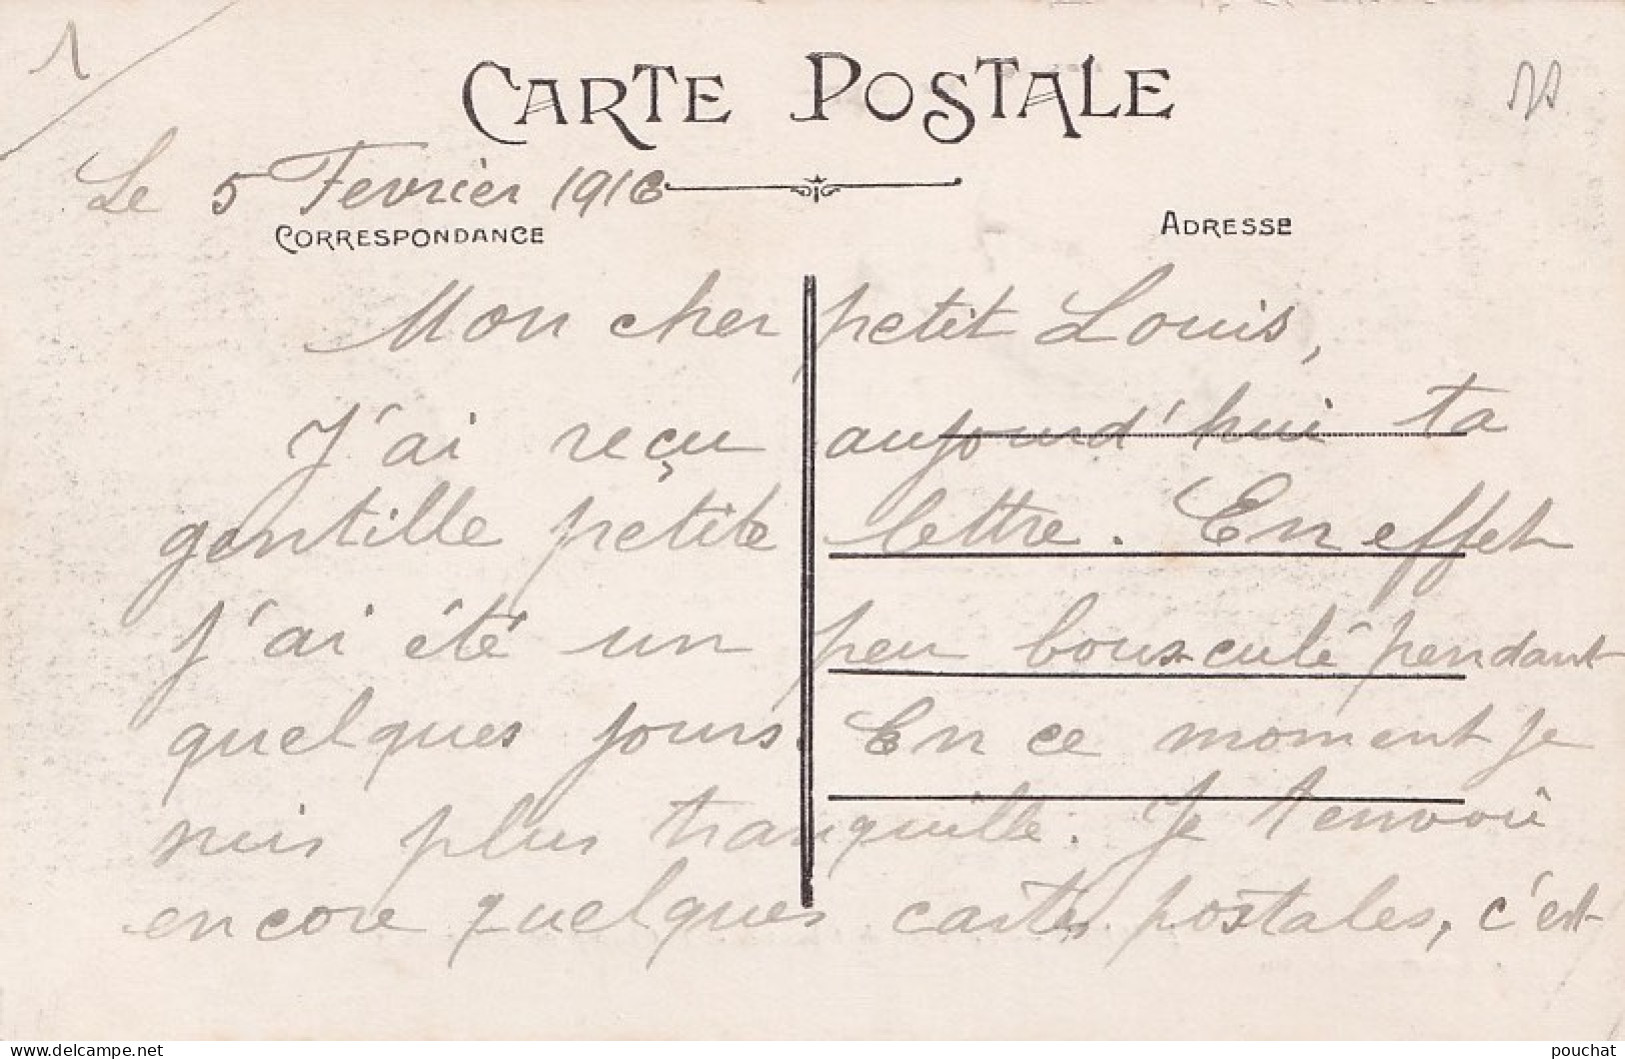 1
CARTE POSTALE
Le 5 Fevrier 1916
CORRESPONDANCE
ADRESSE
Mon cher petit Louis,
J'ai reçu aujourd'hui ta
gentille petite lettre. En effet
j'ai été un peu bousculé pendant
quelques jours. En ce moment je
suis plus tranquille. Je t'envoie
encore quelques cartes postales, c'est
delcampe.net
pouchat